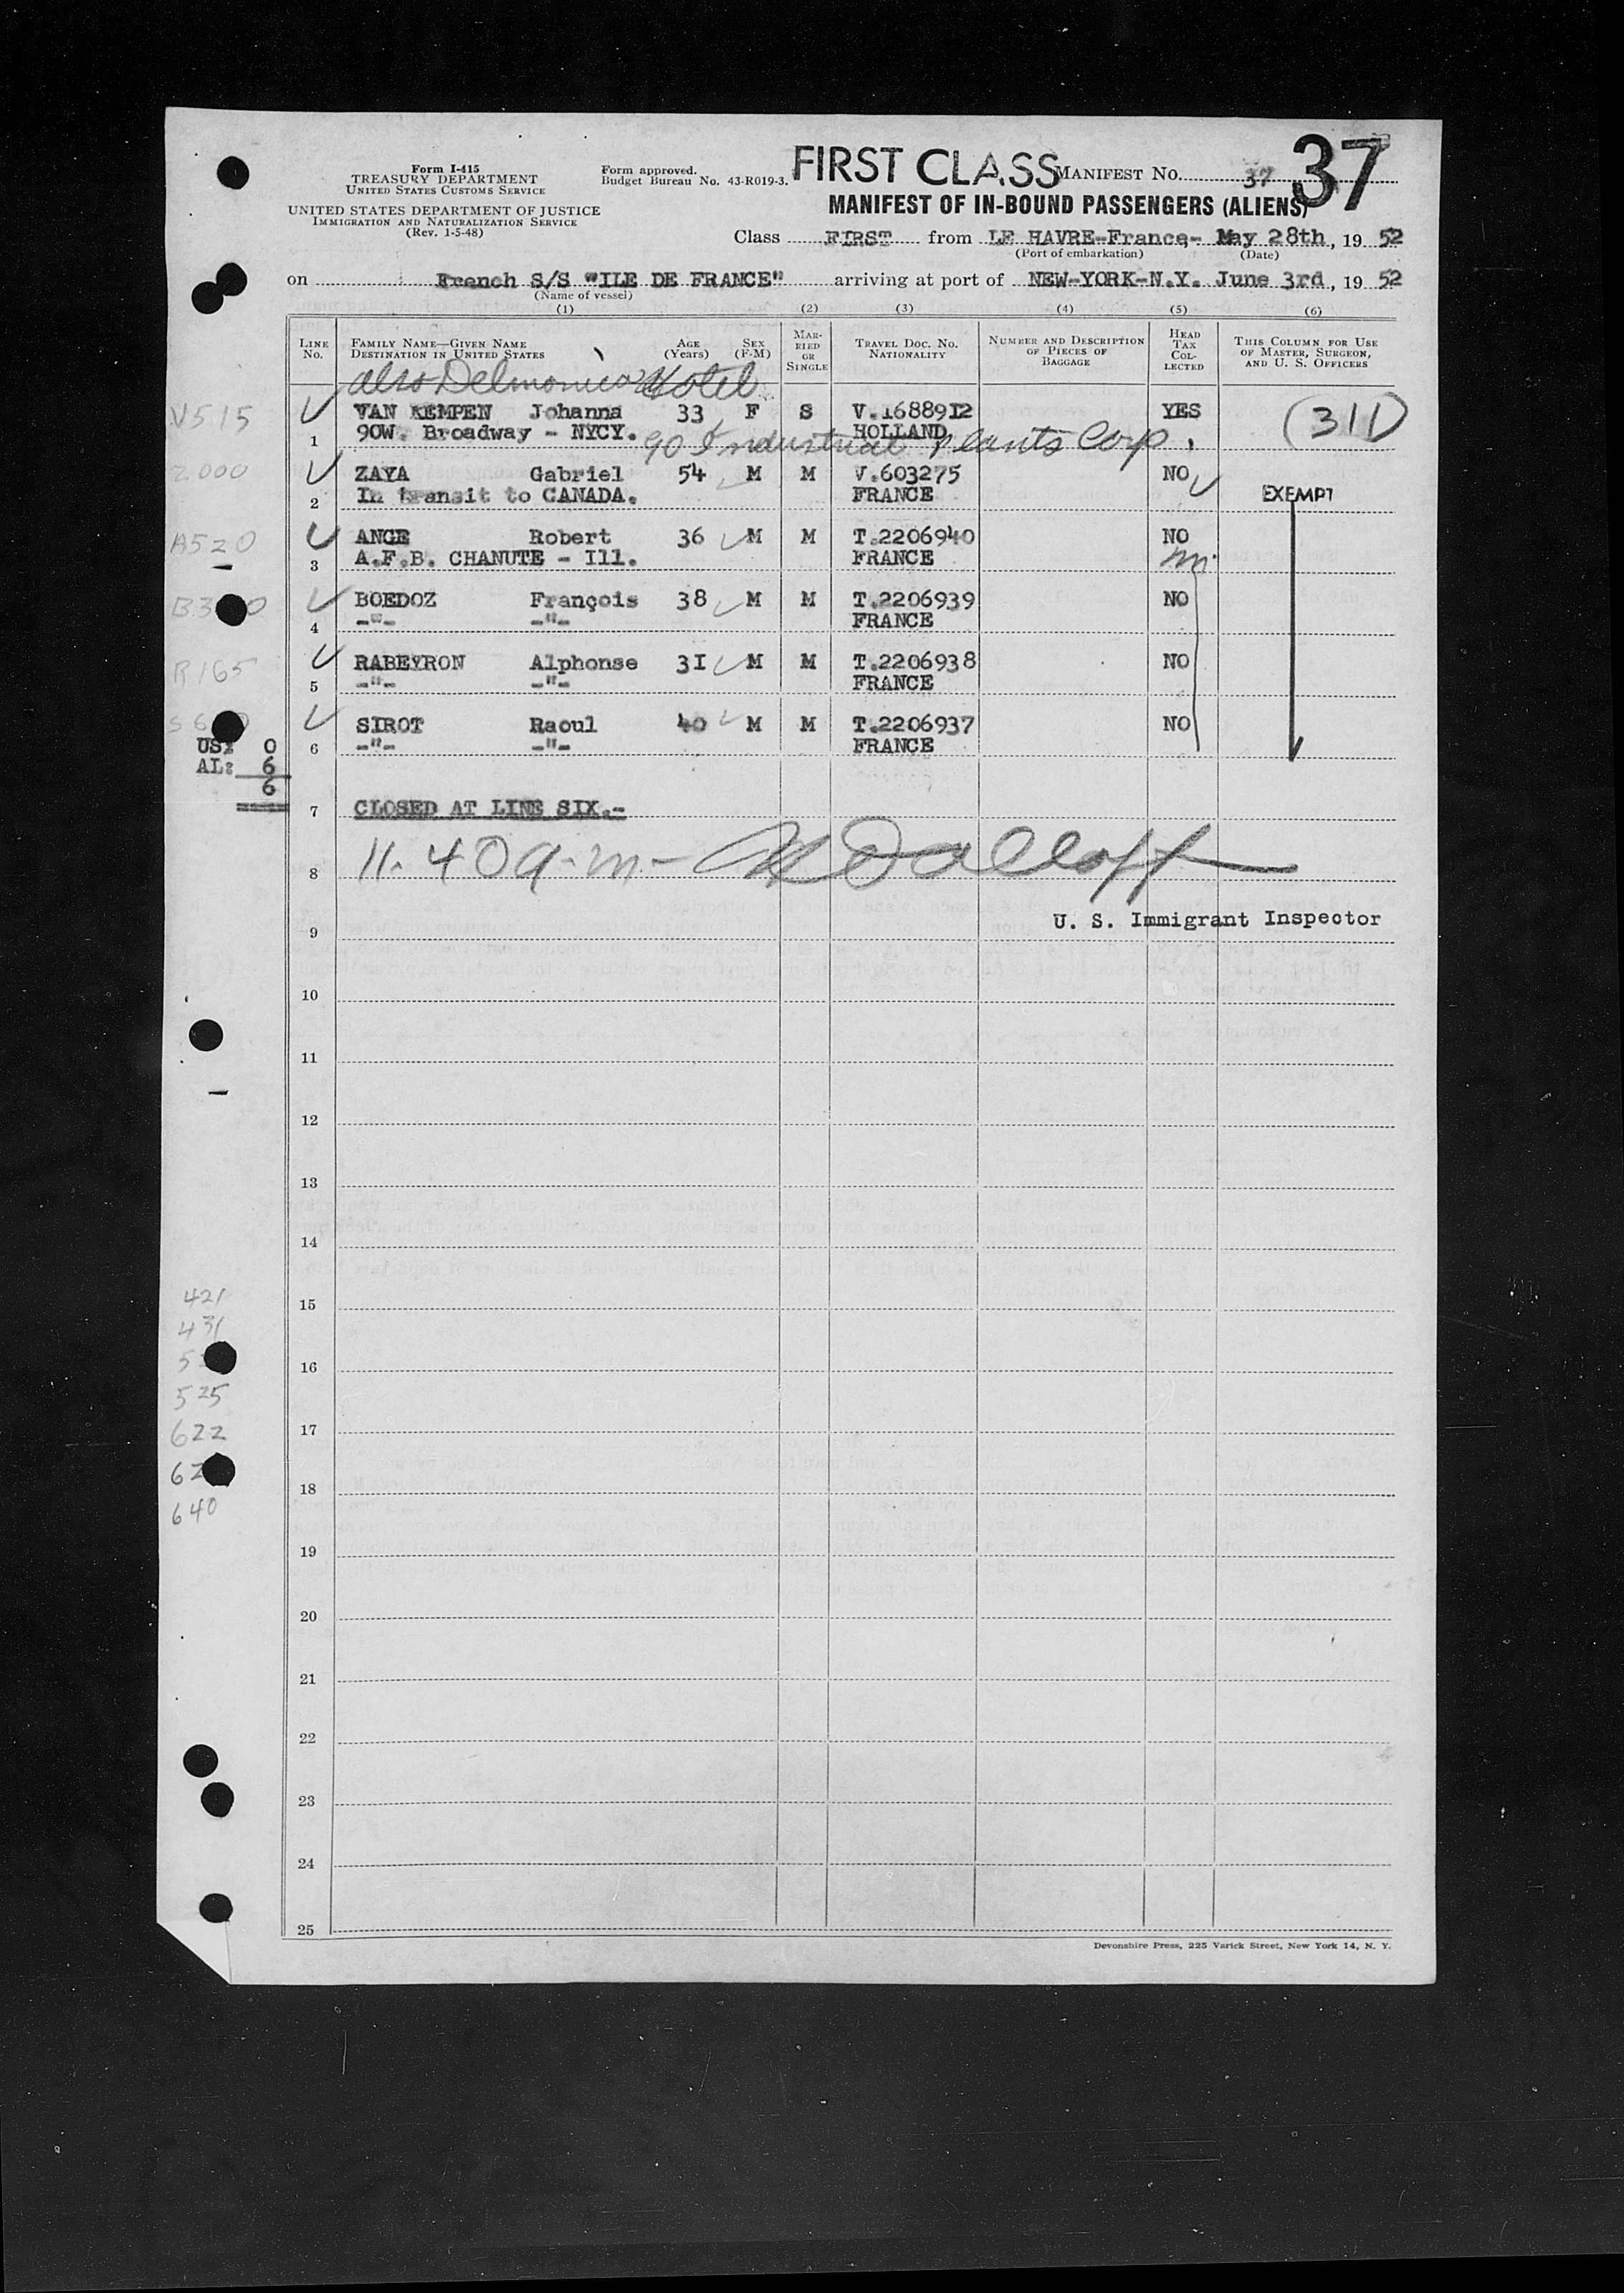 Form I-415
TREASURY DEPARTMENT
UNITED STATES CUSTOMS SERVICE
UNITED STATES DEPARTMENT OF JUSTICE
IMMIGRATION AND NATURALIZATION SERVICE
(Rev. 1-5-48)
Form approved.
Budget Bureau No. 43-R019-3.
FIRST CLASS MANIFEST No. 37 37
MANIFEST OF IN-BOUND PASSENGERS (ALIENS)
Class FIRST from LE HAVRE-France- May 28th, 19 52
(Port of embarkation) (Date)
on French S/S "ILE DE FRANCE" arriving at port of NEW-YORK-N.Y. June 3rd, 19 52
(Name of vessel)
(1) (2) (3) (4) (5) (6)
LINE No. FAMILY NAME—GIVEN NAME DESTINATION IN UNITED STATES AGE (Years) SEX (F-M) MARRIED OR SINGLE TRAVEL DOC. NO. NATIONALITY NUMBER AND DESCRIPTION OF PIECES OF BAGGAGE HEAD TAX COLLECTED THIS COLUMN FOR USE OF MASTER, SURGEON, AND U. S. OFFICERS
also Delmonico Hotel
V515 VAN KEMPEN Johanna 33 F S V.1688912 YES (311)
1 90W. Broadway - NYCY. HOLLAND
Industrial Plants Corp.
Z000 ZAYA Gabriel 54 M M V.603275 NO
2 In transit to CANADA. FRANCE EXEMPT
A520 ANGE Robert 36 M M T.2206940 NO
3 A.F.B. CHANUTE - Ill. FRANCE
BOEDOZ François 38 M M T.2206939 NO
4 -"- -"- FRANCE
R165 RABEYRON Alphonse 3I M M T.2206938 NO
5 -"- -"- FRANCE
SIROT Raoul 40 M M T.2206937 NO
6 -"- -"- FRANCE
US: 0
AL: 6
6
7 CLOSED AT LINE SIX.-
8 11.40 a.m.-
U. S. Immigrant Inspector
9
10
11
12
13
14
421
15
431
16
525
622
17
18
640
19
20
21
22
23
24
25
Devonshire Press, 225 Varick Street, New York 14, N. Y.